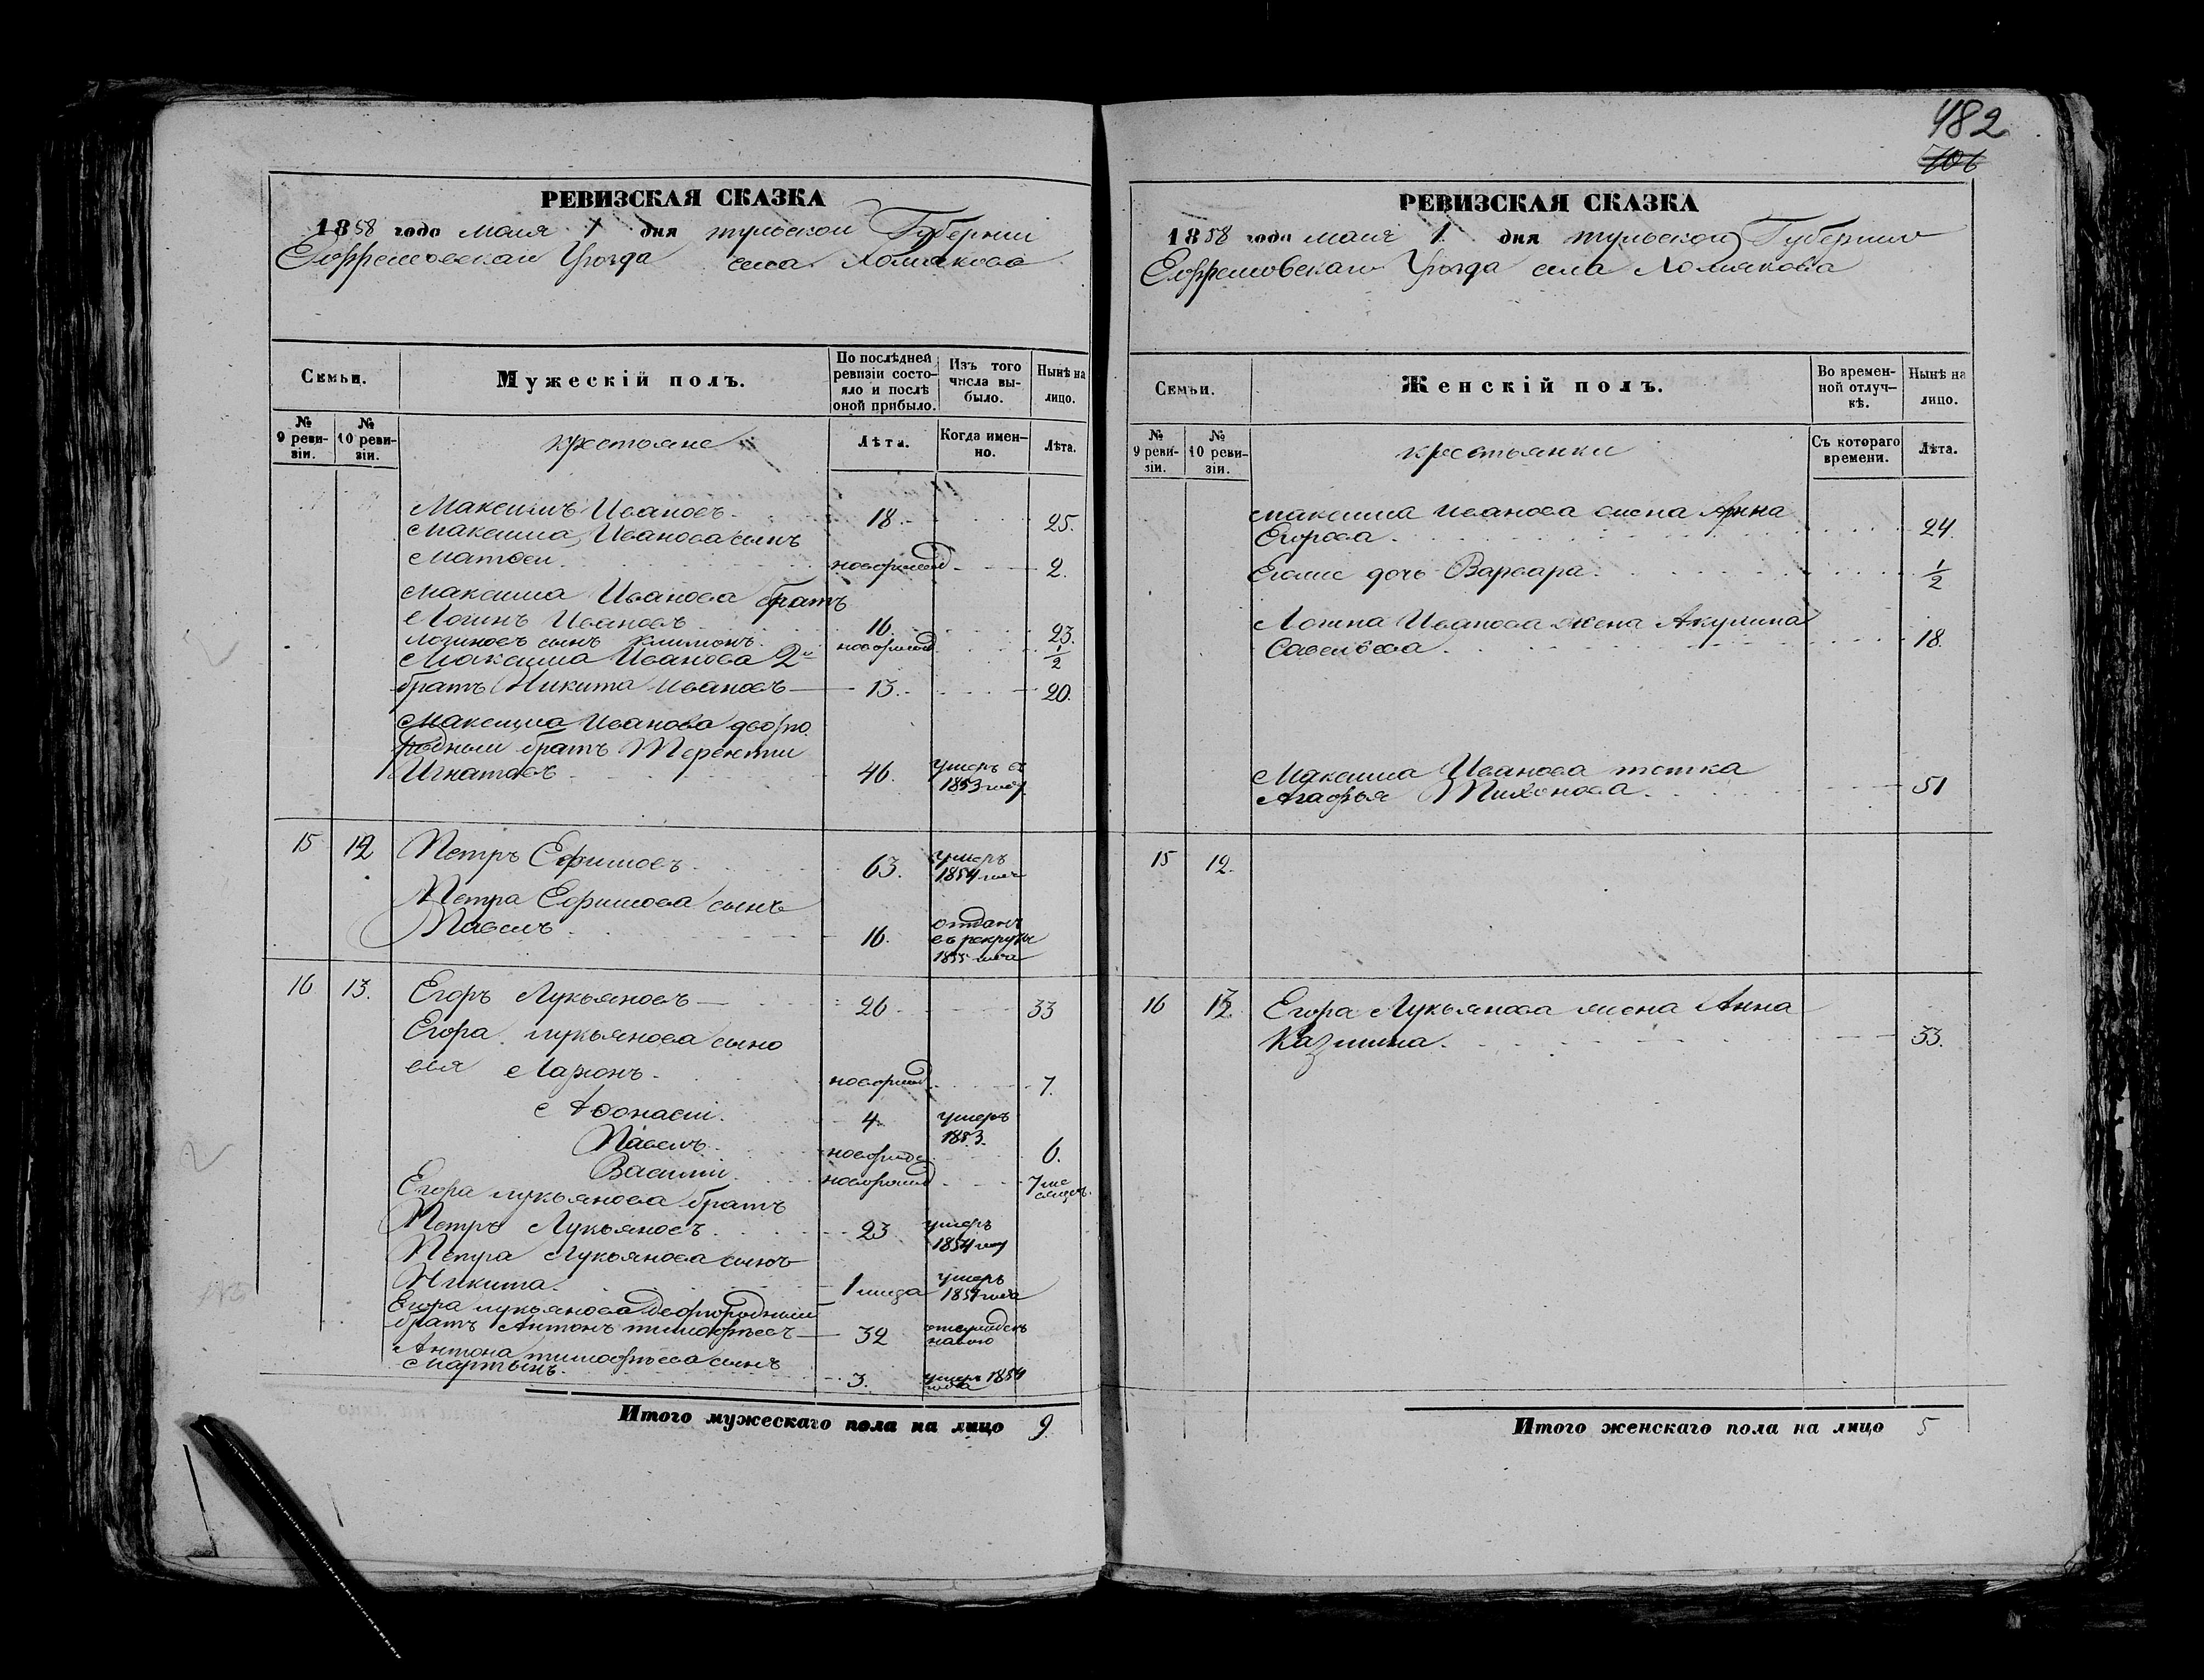 482
706
РЕВИЗСКАЯ СКАЗКА
1858 года мая 1 дня тульской Губерніи
Ефремовскаго Уѣзда села Хомякова
Семьи.
Мужескій полъ.
По послѣдней ревизіи состояло и послѣ оной прибыло.
Изъ того числа выбыло.
Нынѣ на лицо.
№ 9 ревизіи.
№ 10 ревизіи.
крестьяне
Лѣта.
Когда именно.
Лѣта.
Максимъ Ивановъ 18 25.
Максима Иванова сынъ
Матвей новорожд 2.
Максима Иванова братъ
Логинъ Ивановъ 16. 23.
Логиновъ сынъ новорожд 1/2
Максима Иванова 2й
братъ Никита Ивановъ 13. 20.
Максима Иванова двоюродный братъ Терентий
Игнатовъ 46. умеръ въ 1853 году
15 12 Петръ Ефимовъ 63. умеръ 1854 года
Петра Ефимова сынъ
Павелъ 16. отданъ въ рекруты 1855 года
16 13. Егоръ Лукьяновъ 26 33
Егора Лукьянова сыно
вья Ларіонъ новорожд 7.
Афонасій 4 умеръ 1853.
Павелъ новорожд 6.
Василій новорожд 7 месяцев.
Егора Лукьянова братъ
Петръ Лукьяновъ 23 умеръ 1854 году
Петра Лукьянова сынъ
Никита 1 умеръ 1854 года
Егора Лукьянова двоюродный
братъ Антонъ Тимофеевъ 32
Антона Тимофеева сынъ
Мартынъ 3. умеръ 1854 года
Итого мужескаго пола на лицо 9
РЕВИЗСКАЯ СКАЗКА
1858 года мая 1 дня тульской Губерніи
Ефремовскаго Уѣзда села Хомякова
Семьи.
Женскій полъ.
Во временной отлучкѣ.
Нынѣ на лицо.
№ 9 ревизіи.
№ 10 ревизіи.
крестьянки
Съ котораго времени.
Лѣта.
Максима Иванова жена Анна
Егорова 24.
Ево дочь Варвара 1/2
Логина Иванова жена Акулина
Савельева 18.
Максима Иванова тетка
Агафья Тихонова 51
15 12.
16 13 Егора Лукьянова жена Анна
Казмина 33.
Итого женскаго пола на лицо 5